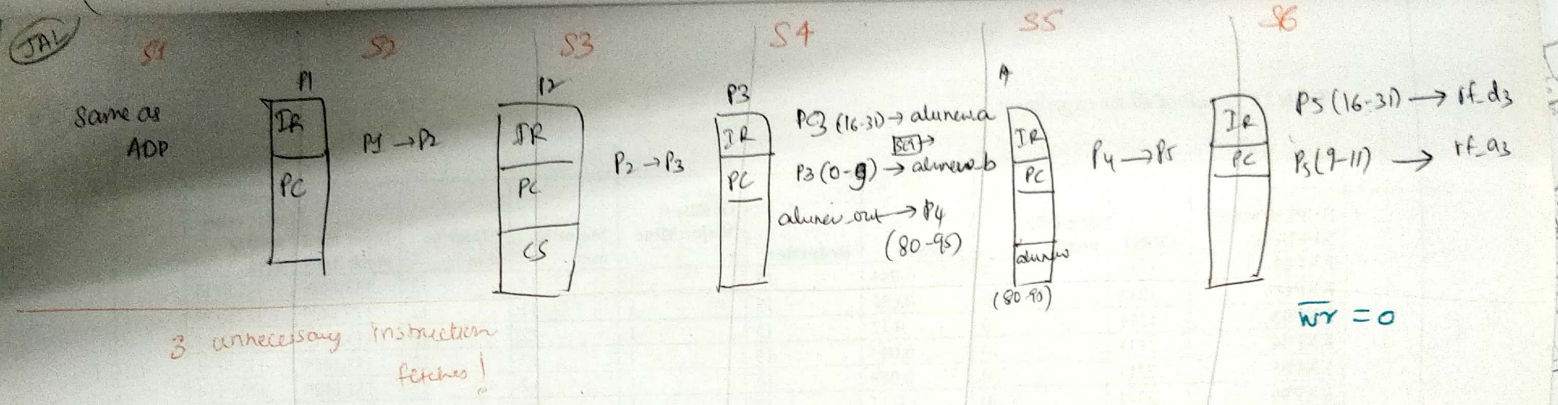 JAL
S1 S2 S3 S4 S5 S6
Same as
ADP
P1
IR
PC
P1 → P2
P2
IR
PC
CS
P2 → P3
P3
IR
PC
PC3 (16-31) → alunew_a
SE9 →
P3 (0-9) → alunew_b
alunew_out → P4
(80-95)
IR
PC
alunew
(80-95)
P4 → P5
IR
PC
P5 (16-31) → rf_d3
P5 (9-11) → rf_a3
wr = 0
3 unnecessary instruction
fetches!